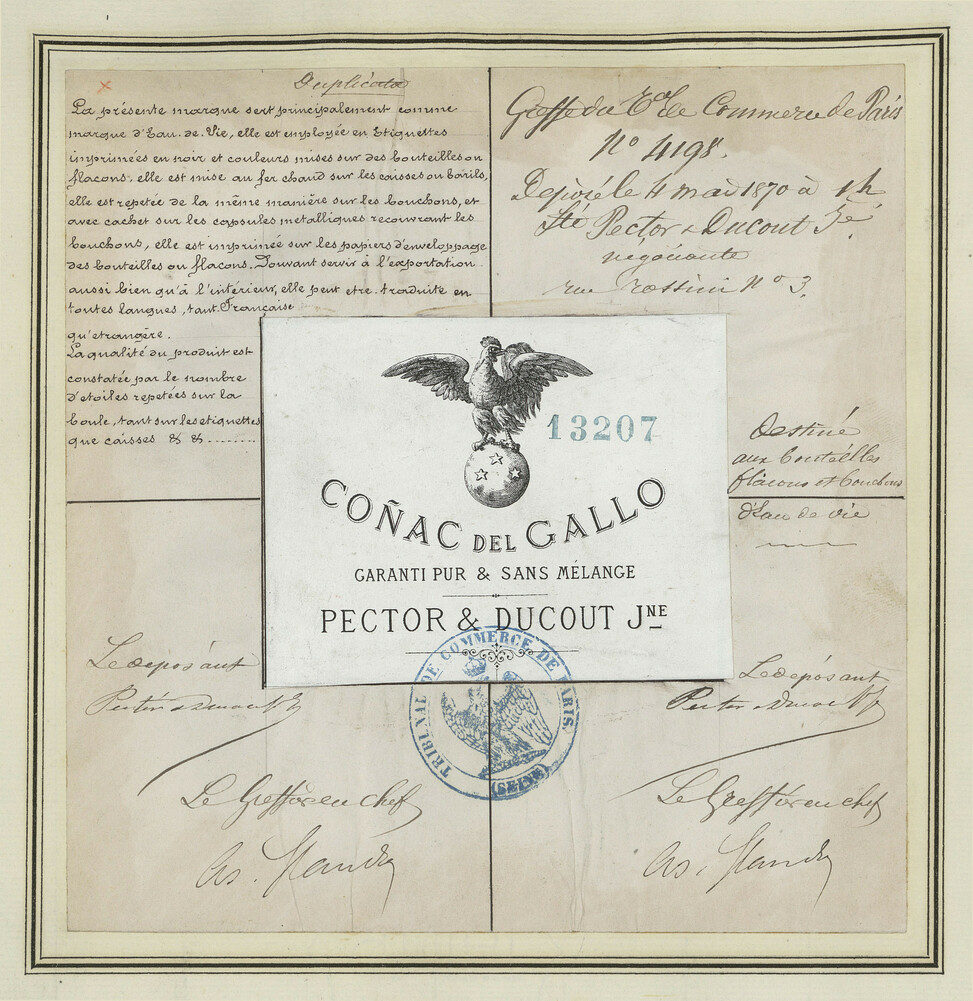 Duplicata
La présente marque sert principalement comme
marque d'Eau. de. Vie, elle est employée en Etiquettes
imprimées en noir et couleurs mises sur des bouteilles ou
flacons, elle est mise au fer chaud sur les caisses ou barils,
elle est repetée de la même manière sur les bouchons, et
avec cachet sur les capsules metalliques recouvrant les
bouchons, elle est imprimée sur les papiers d'enveloppage
des bouteilles ou flacons. Pouvant servir à l'exportation
aussi bien qu'à l'intérieur, elle peut etre traduite en
toutes langues, tant Française
qu'etrangère.
La qualité du produit est
constatée par le nombre
d'etoiles repetées sur la
boule, tant sur les etiquettes
que caisses & & ........
Greffe du Tal de Commerce de Paris
No 4198.
Déposé le 4 mai 1870 à 1h
Sté Pector & Ducout Je
négociants
rue Rossini No 3.
13207
COÑAC DEL GALLO
GARANTI PUR & SANS MÉLANGE
PECTOR & DUCOUT JNE
Destiné
aux bouteilles
flacons et bouchons
d'Eau de vie
TRIBUNAL DE COMMERCE DE PARIS.
(SEINE)
Le déposant
Pector & Ducout
Le Greffier en chef
Le déposant
Pector & Ducout
Le Greffier en chef